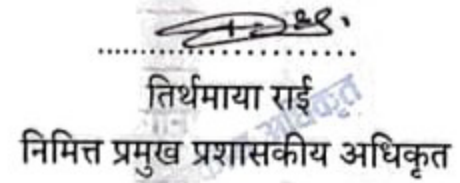 तिर्थमाया राई
निमित्त प्रमुख प्रशासकीय अधिकृत